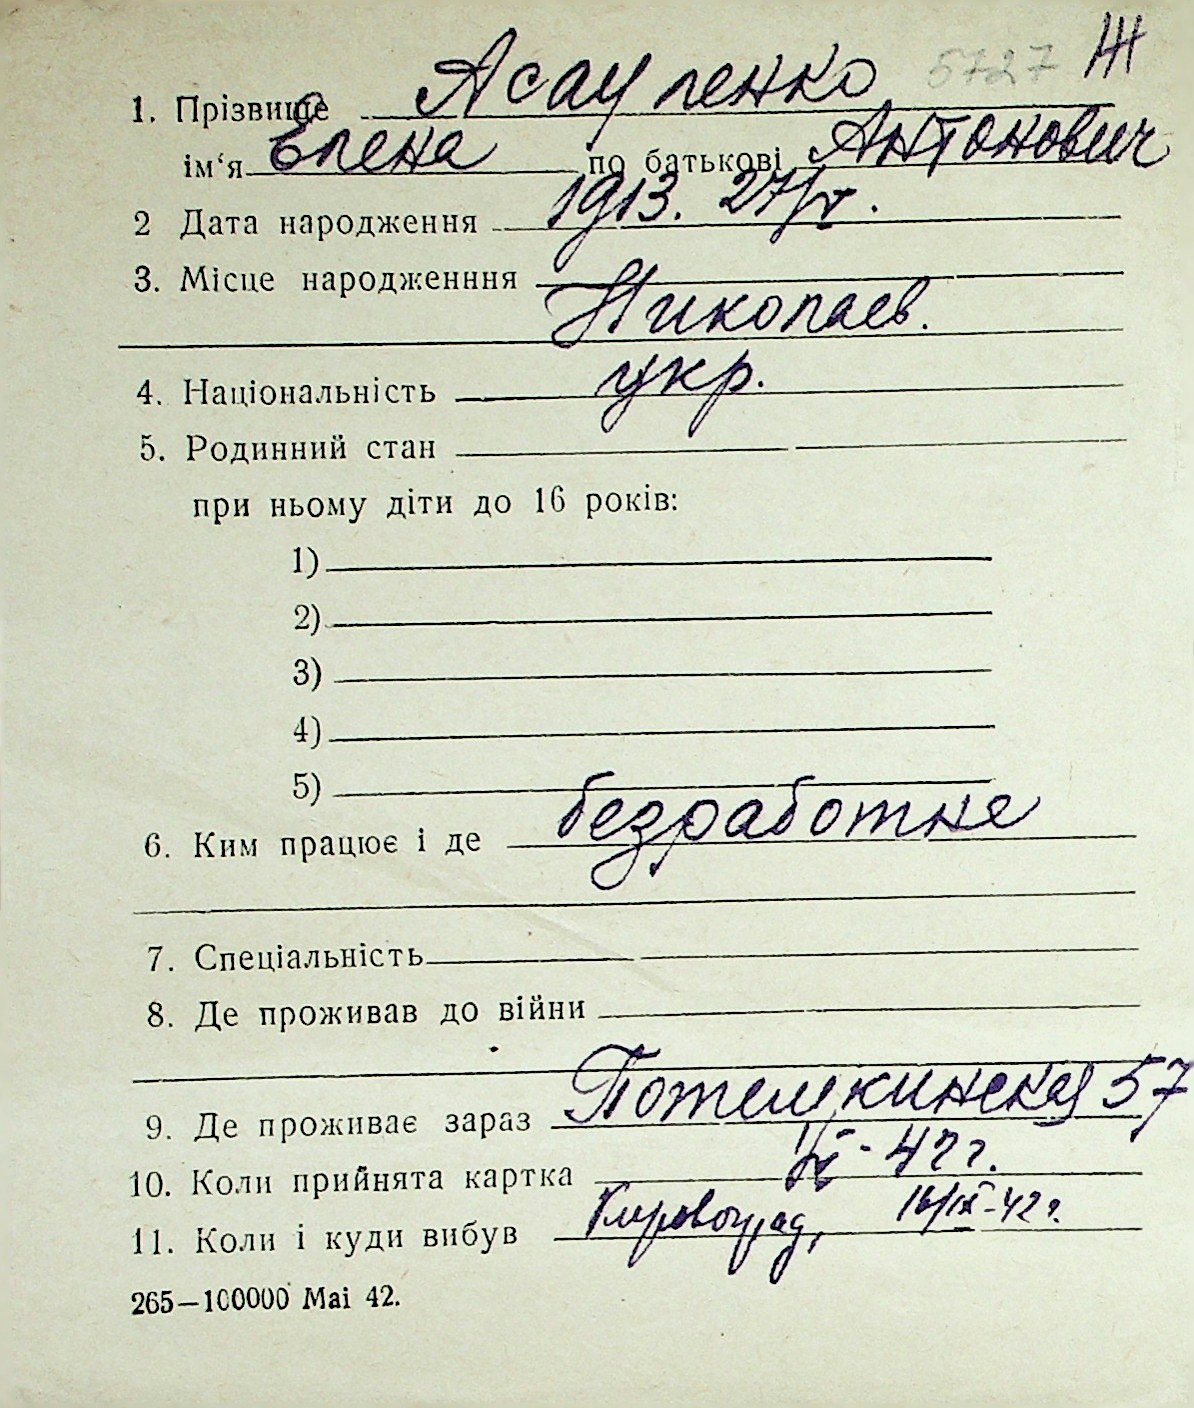 5727 Ж
1. Прізвище Асауленко
ім‘я Елена по батькові Антонович
2 Дата народження 1913. 27/V.
3. Місце народженння
Николаев.
4. Національність укр.
5. Родинний стан
при ньому діти до 16 років:
1)
2)
3)
4)
5)
6. Ким працює і де безработне
7. Спеціальність
8. Де проживав до війни
9. Де проживає зараз Потемкинская 57
10. Коли прийнята картка - 42 г.
11. Коли і куди вибув Кировоград, 16/IX-42 г.
265—100000 Mai 42.